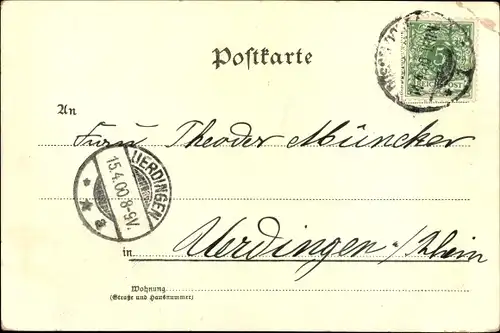 Postkarte
5
REICHSPOST
An
Frau Theodor Müncker
UERDINGEN
15.4.00.8-9V.
in Uerdingen a/Rhein
Wohnung
(Straße und Hausnummer)